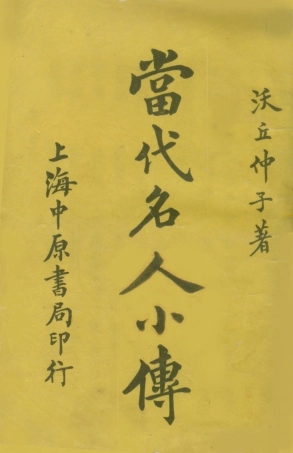 沃丘仲子著
當代名人小傳
上海中原書局印行